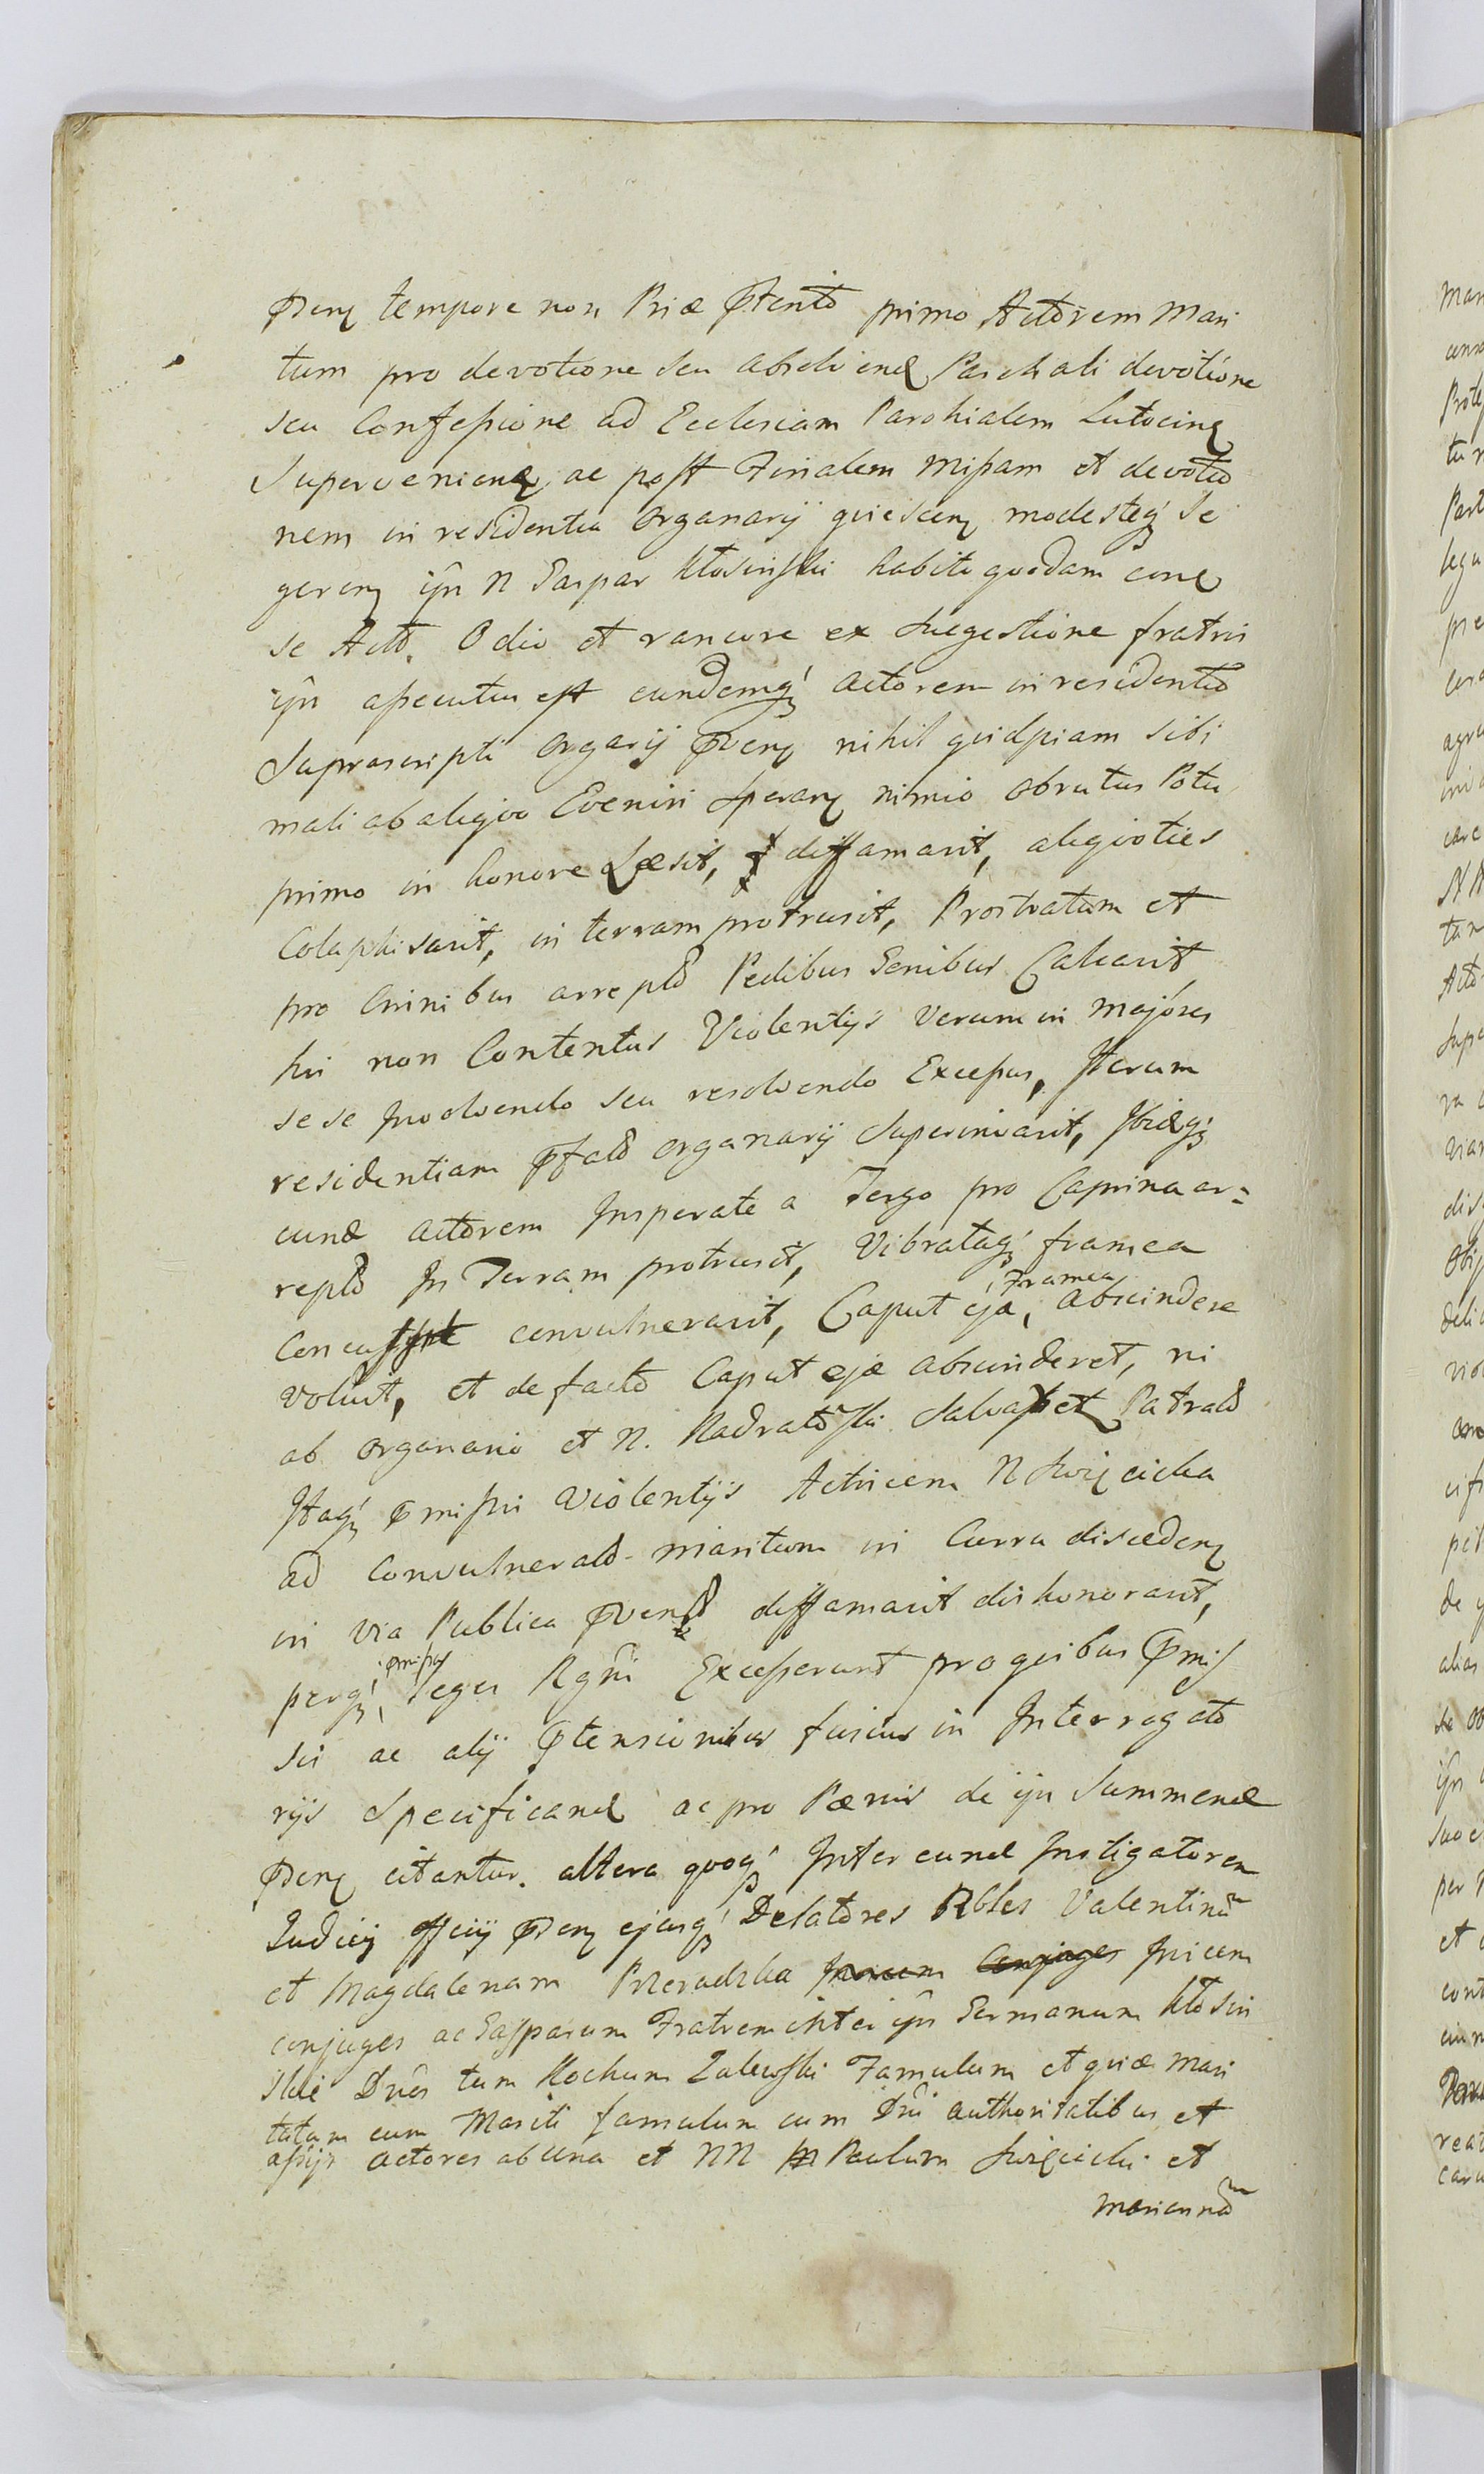 tempore non primo Actorem Mari
tum pro devotione seu absolvend Paschali devotione
seu Confessione ad Ecclesiam Parohialem Lutocinq
Supervenienq ac post Finalem Missam et devotio
nem in residentia Organarij quiescenq modesteq se
gerenq ijn N Gaspar Kłosinski habito quodam
se Acto. Odio et rancore ex Suegestione fratris
ijn assecutus est eundemq Actorem in residentia
Suprascripti Orgarij nihil quidpiam sibi
mali ab aliqvo Eveniri Speranq nimio Obrutus Potu
primo in honore Læsit, diffamavit, aliqvoties
Colaphisavit, in terram protrusit, Prostratum et
pro Crinibus arrepto Pedibus Genibus Calcavit
his non Contentus Violentijs Verum in majores
se se Involvendo seu resolvendo Excessus, Iterum
residentiam Organarij Superinvasit, Ibidq
eund Actorem Insperate a Tergo pro Caprina ar=
repto In Terram protrusit, Vibrataq framea
convulneravit, Caput eja, Framea Abscindere
voluit, et de facto Caput ejæ abscinderet, ni
ab Organario et N. Salva et Patrato
Itaq Violentijs Actricem N Swięcicka
ad Convulnerato maritum in Curru discedenq
in via Publica diffamavit dishonoravit,
perq Leges Rgni Excesserunt pro quibus
sis ac alij fusius in Interrogato
rijs Specificand ac pro Pœnis de ijn Summend
citantur. altera qvoq Inter eund Instigatorem
Judicij Officij ejusq Delatores Nbles Valentinu
et Magdalenam Invicem
conjuges ac Gasparum Fratrem ijn Germanum Kłosin
ski Dnos tum Rochum Zalewski Famulum et qvæ Mari
tatam cum Mariti famulum cum Dni authoritatibus et
assijs actores ab una et NN Paulum Swięcicki et
Marianna